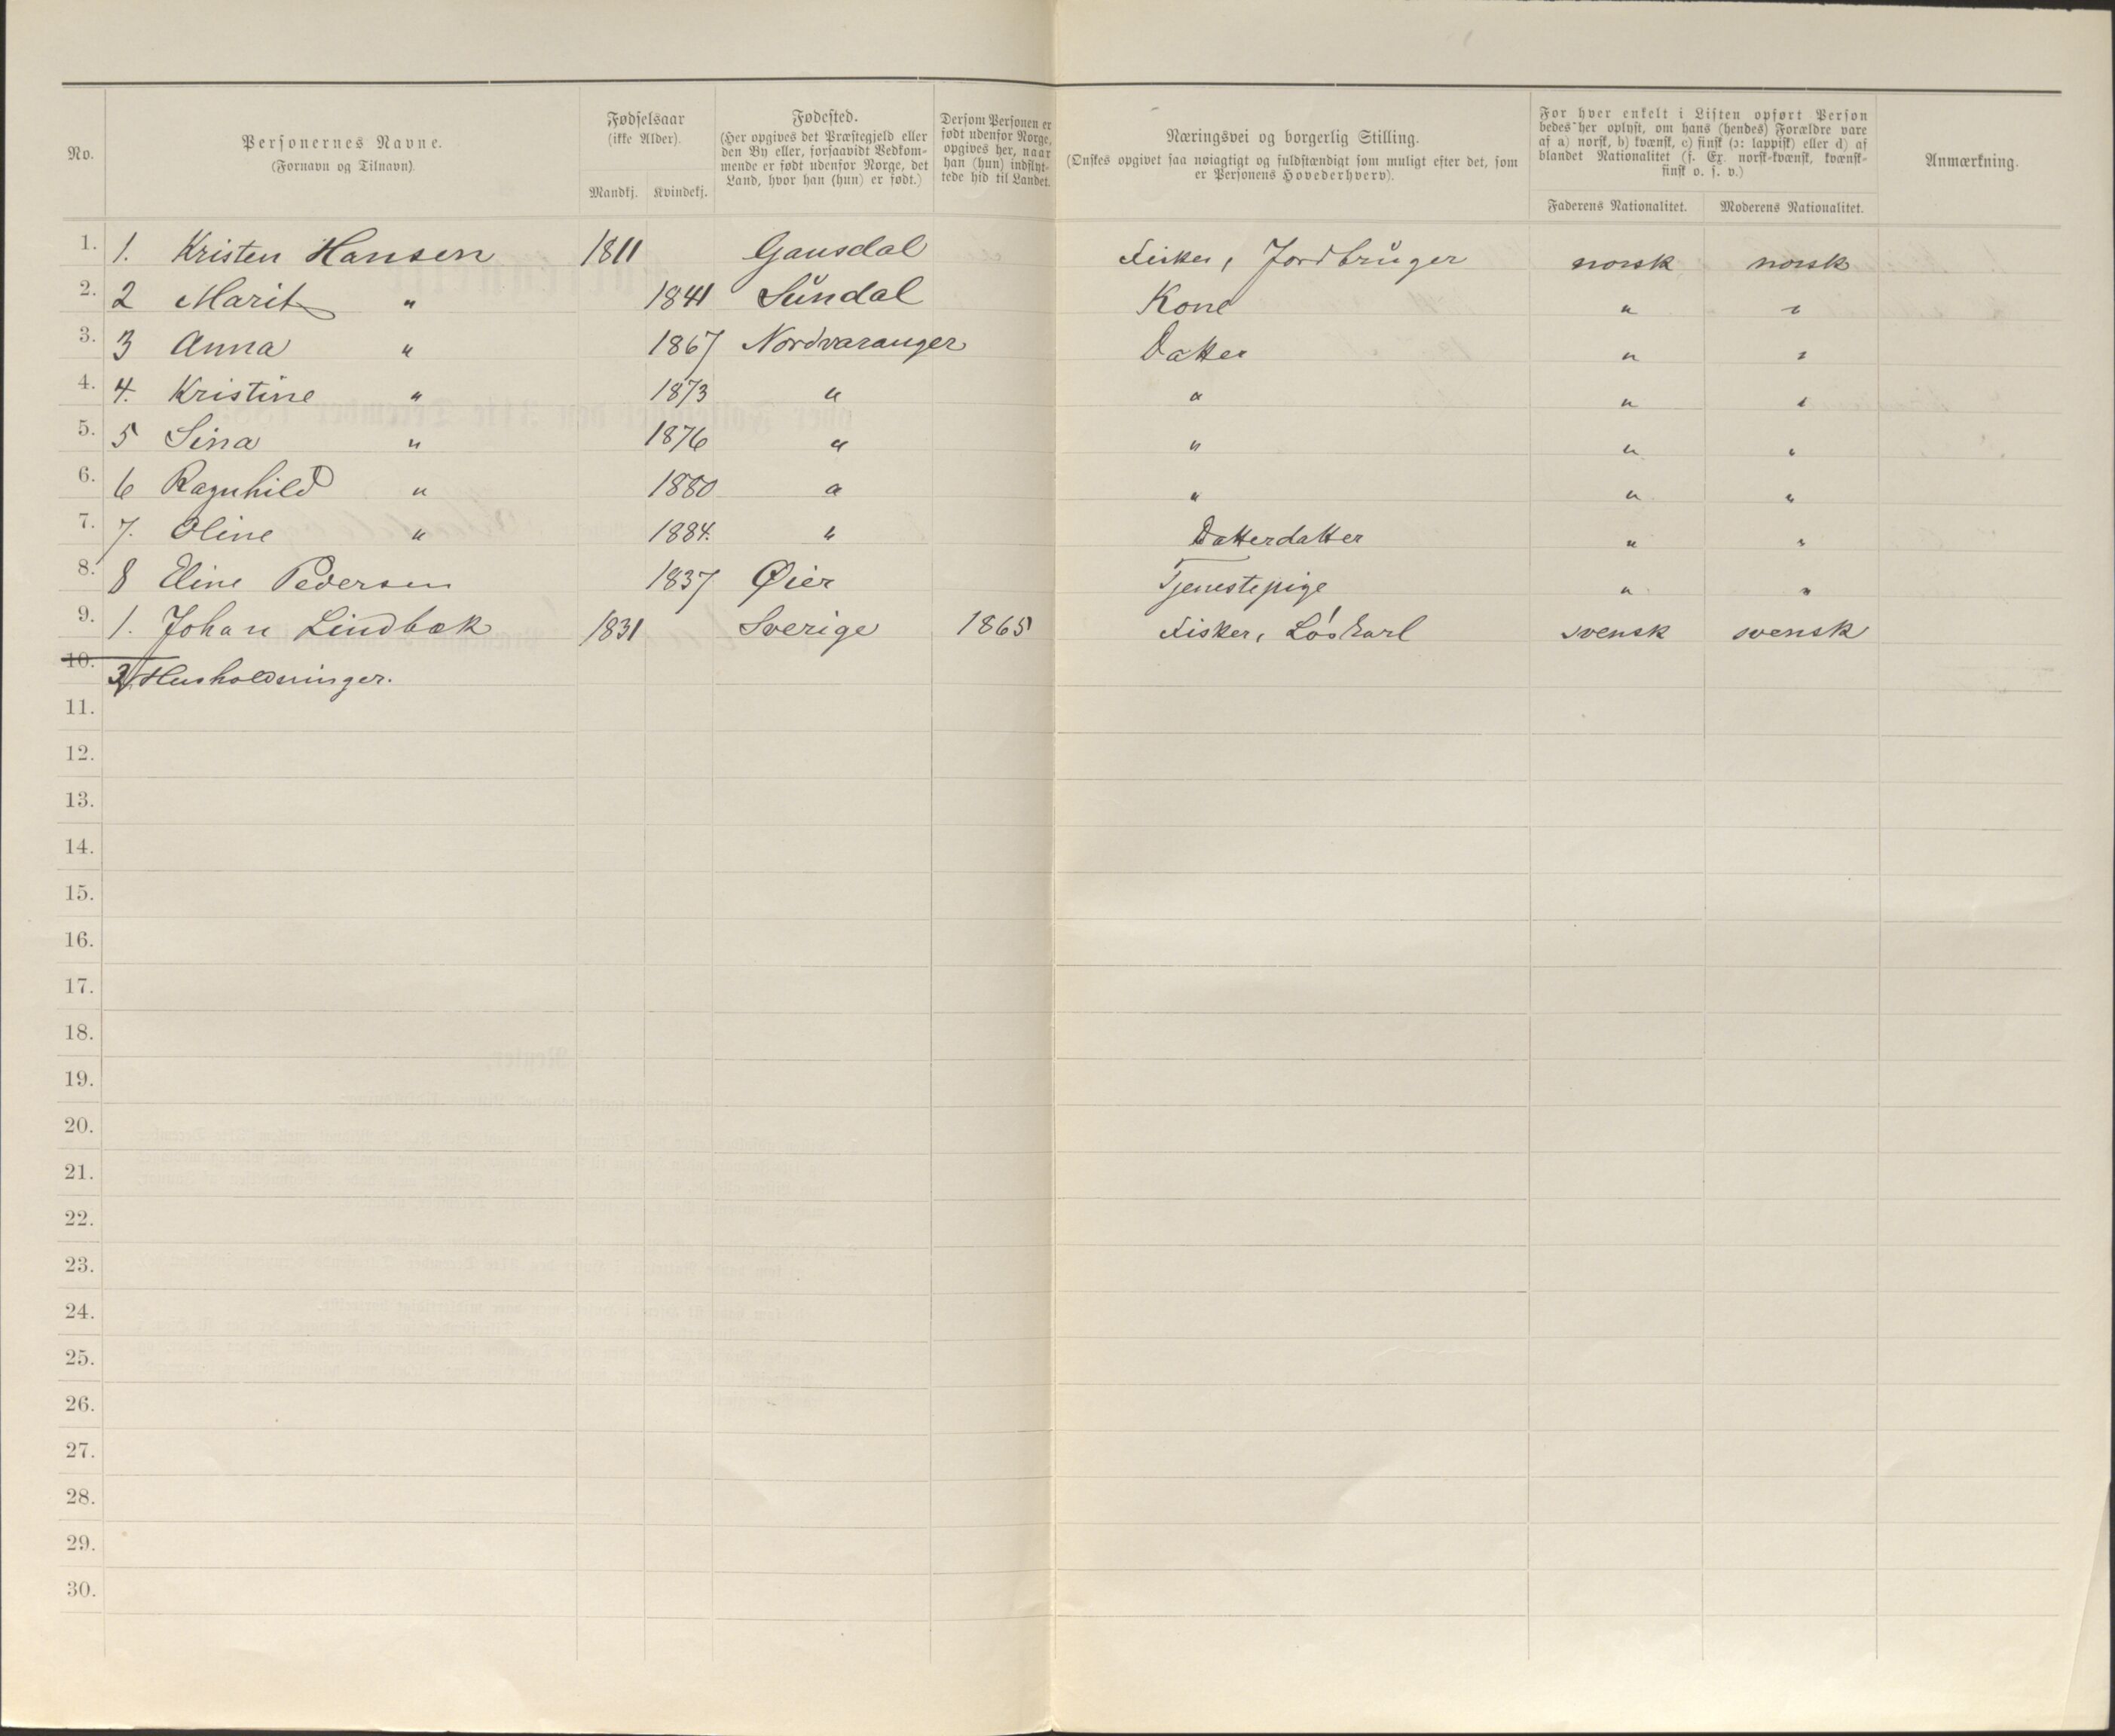 No.
Personernes Navne.
(Fornavn og Tilnavn).
Fødselsaar
(ikke Alder).
Mandkj. Kvindekj.
Fødested.
(Her opgives det Præstegjeld eller
den By eller, forsaavidt Vedkom-
mende er født udenfor Norge, det
Land, hvor han (hun) er født.)
Dersom Personen er
født udenfor Norge,
opgives her, naar
han (hun) indflyt-
tede hid til Landet.
Næringsvei og borgerlig Stilling.
(Ønskes opgivet saa nøiagtigt og fuldstændigt som muligt efter det, som
er Personens Hovederhverv).
For hver enkelt i Listen opført Person
bedes her oplyst, om hans (hendes) Forældre vare
af a) norsk, b) kvænsk, c) finsk (ɔ: lappisk) eller d) af
blandet Nationalitet (f. Ex. norsk-kvænsk, kvænsk-
finsk o. s. v.)
Faderens Nationalitet. Moderens Nationalitet.
Anmærkning.
1. 1. Kristen Hansen 1811 Gausdal Fisker, Jordbruger norsk norsk
2. 2 Marit " 1841 Sundal Kone " "
3. 3 Anna " 1867 Nordvaranger Datter " "
4. 4. Kristine " 1873 " " " "
5. 5 Sina " 1876 " " " "
6. 6 Ragnhild " 1880 " " " "
7. 7. Oline " 1884. " Datterdatter " "
8. 8 Eline Pedersen 1837 Øier Tjenestepige " "
9. 1. Johan Lindbæk 1831 Sverige 1865 Fisker, Løskarl svensk svensk
10. Husholdninger.
11.
12.
13.
14.
15.
16.
17.
18.
19.
20.
21.
22.
23.
24.
25.
26.
27.
28.
29.
30.